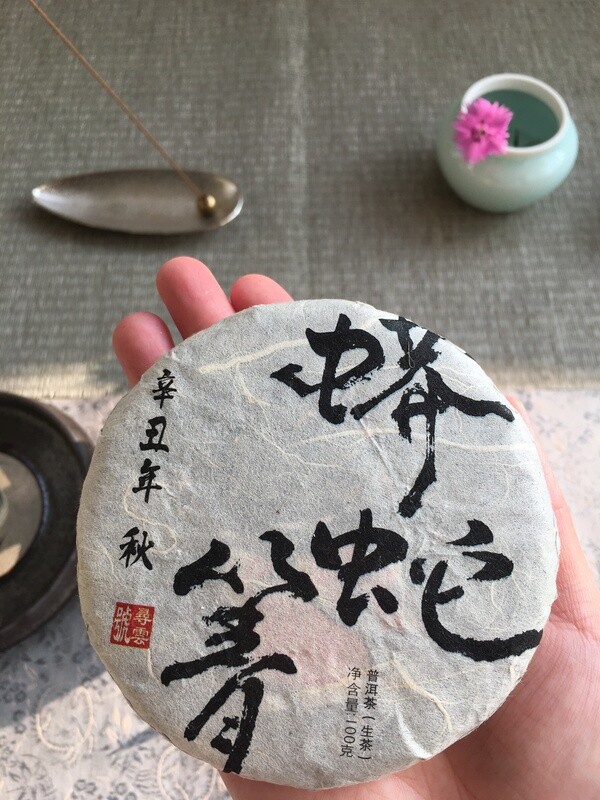 蟒蛇箐
辛丑年 秋
尋雲號
普洱茶(生茶)
净含量100克